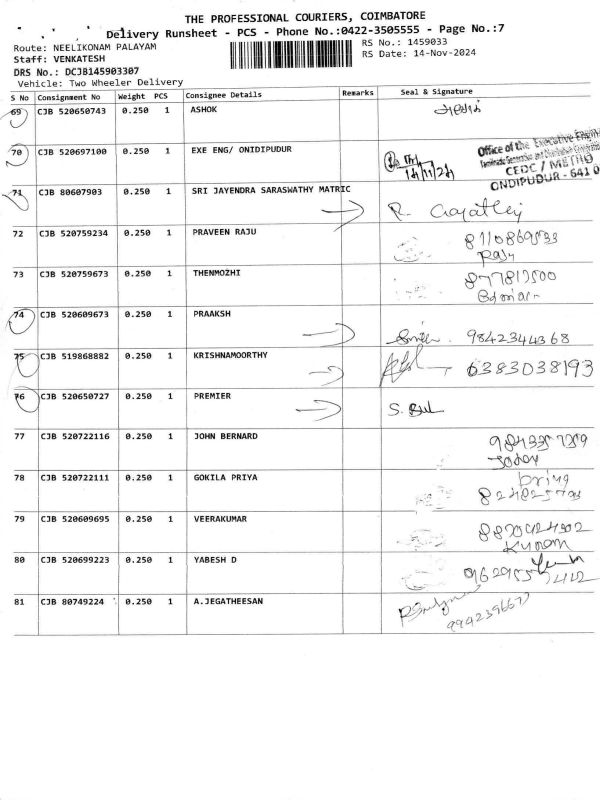 THE PROFESSIONAL COURIERS, COIMBATORE
Delivery Runsheet - PCS - Phone No.:0422-3505555 - Page No.:7
Route: NEELIKONAM PALAYAM
RS No.: 1459033
Staff: VENKATESH
RS Date: 14-Nov-2024
DRS No.: DCJB145903307
Vehicle: Two Wheeler Delivery
S No Consignment No Weight PCS Consignee Details Remarks Seal & Signature
69 CJB 520650743 0.250 1 ASHOK
70 CJB 520697100 0.250 1 EXE ENG/ ONIDIPUDUR
14/11/24
Office of the Executive Engin
CEDC / METRO
ONDIPUDUR - 641 0
71 CJB 80607903 0.250 1 SRI JAYENDRA SARASWATHY MATRIC
R. Gayathri
72 CJB 520759234 0.250 1 PRAVEEN RAJU
Raju
73 CJB 520759673 0.250 1 THENMOZHI
74 CJB 520609673 0.250 1 PRAAKSH
9842344368
75 CJB 519868882 0.250 1 KRISHNAMOORTHY
6383038193
76 CJB 520650727 0.250 1 PREMIER
S.
77 CJB 520722116 0.250 1 JOHN BERNARD
78 CJB 520722111 0.250 1 GOKILA PRIYA
79 CJB 520609695 0.250 1 VEERAKUMAR
80 CJB 520699223 0.250 1 YABESH D
81 CJB 80749224 0.250 1 A.JEGATHEESAN